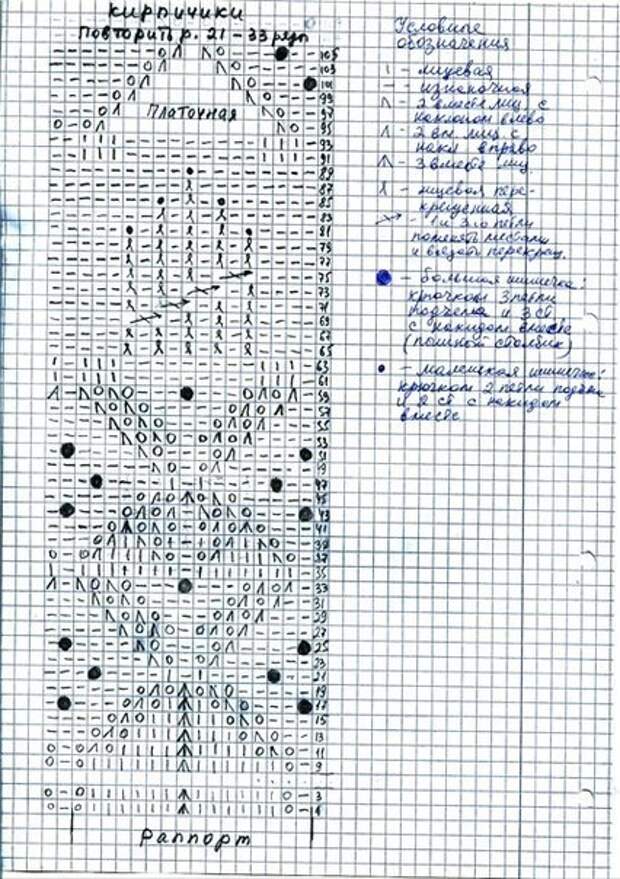 кирпичики
Повторить р. 21 - 33 ряд
Платочная
105
103
101
99
97
95
93
91
89
87
85
83
81
79
77
75
73
71
69
67
65
63
61
59
57
55
53
51
49
47
45
43
41
39
37
35
33
31
29
27
25
23
21
19
17
15
13
11
9
3
1
Раппорт
Условные
обозначения
| - лицевая
— - изнаночная
- 2 вместе лиц. с
наклоном влево
- 2 вм лиц с
накл вправо
- 3 вместе лиц.
- лицевая пере-
крещенная
- 1 и 3-ю петли
поменять местами
и вязать перекрещ.
- большая шишечка:
крючком 3 петли
подъема и 3 ст
с накидом вместе
(пышный столбик)
- маленькая шишечка:
крючком 2 петли подъема
и 2 ст с накидом
вместе